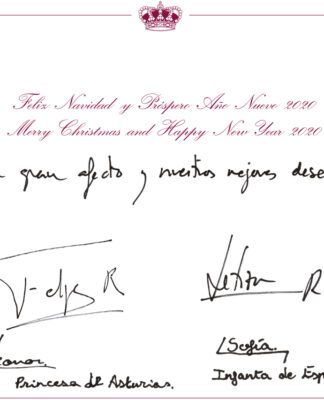 Feliz Navidad y Próspero Año Nuevo 2020
Merry Christmas and Happy New Year 2020
gran afecto y nuestros mejores dese
Felipe R
Letizia R
eonor
Princesa de Asturias.
Sofía
Infanta de Esp